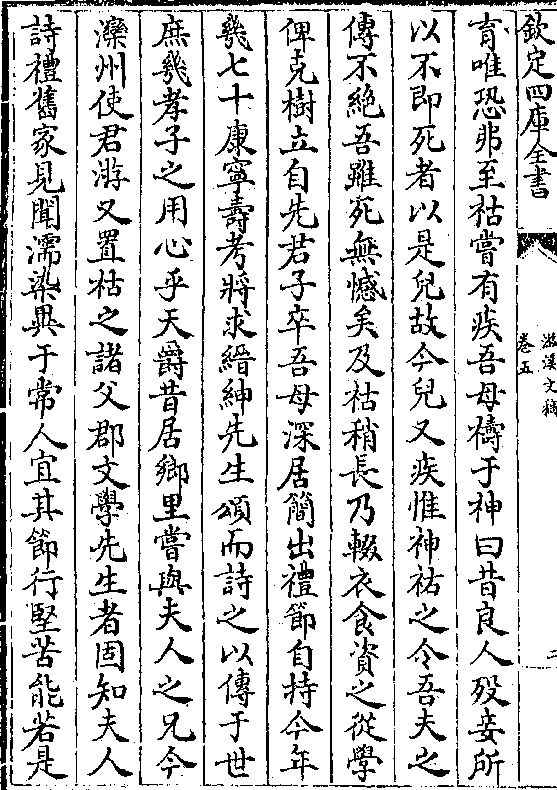 欽定四庫全書
滋溪文稿
卷五
二
育唯恐弗至祜嘗有疾吾母禱于神曰昔良人殁妾所
以不即死者以是兒故今兒又疾惟神祐之令吾夫之
傳不絕吾雖死無憾矣及祜稍長乃輟衣食資之從學
俾克樹立自先君子卒吾母深居簡出禮節自持今年
幾七十康寧壽考將求縉紳先生頌而詩之以傳于世
庶幾孝子之用心乎天爵昔居鄉里嘗與夫人之兄今
灤州使君游又置祜之諸父郡文學先生者固知夫人
詩禮舊家見聞濡染異于常人宜其節行堅苦能若是